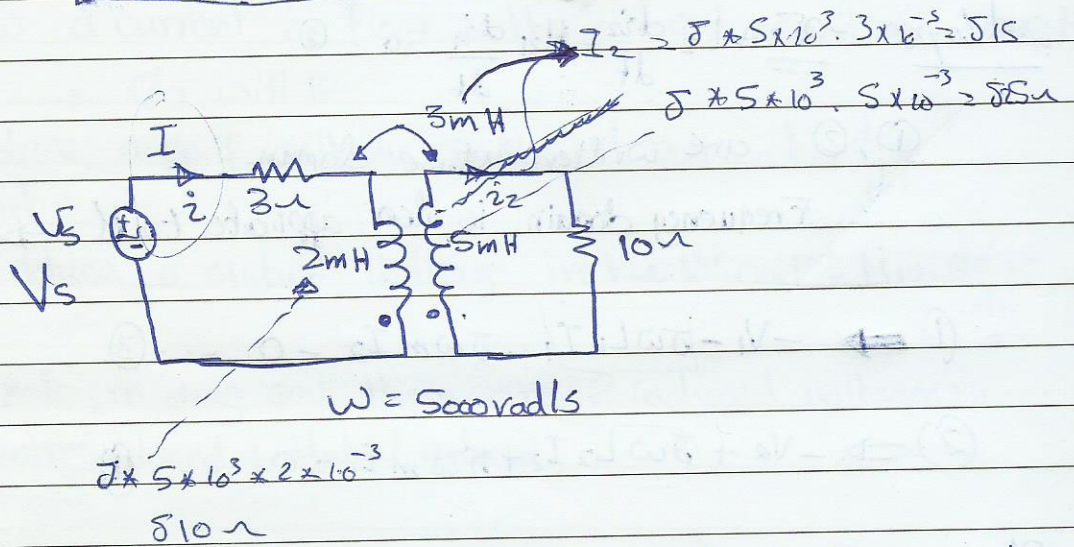 I₂ = j * 5×10³ . 3×10⁻³ = j15
j * 5×10³ . 5×10⁻³ = j25Ω
3mH
I
i
3Ω
i₂
Vs
Vs
2mH
5mH
10Ω
W = 5000 rad/s
j* 5*10³ * 2*10⁻³
j10 Ω